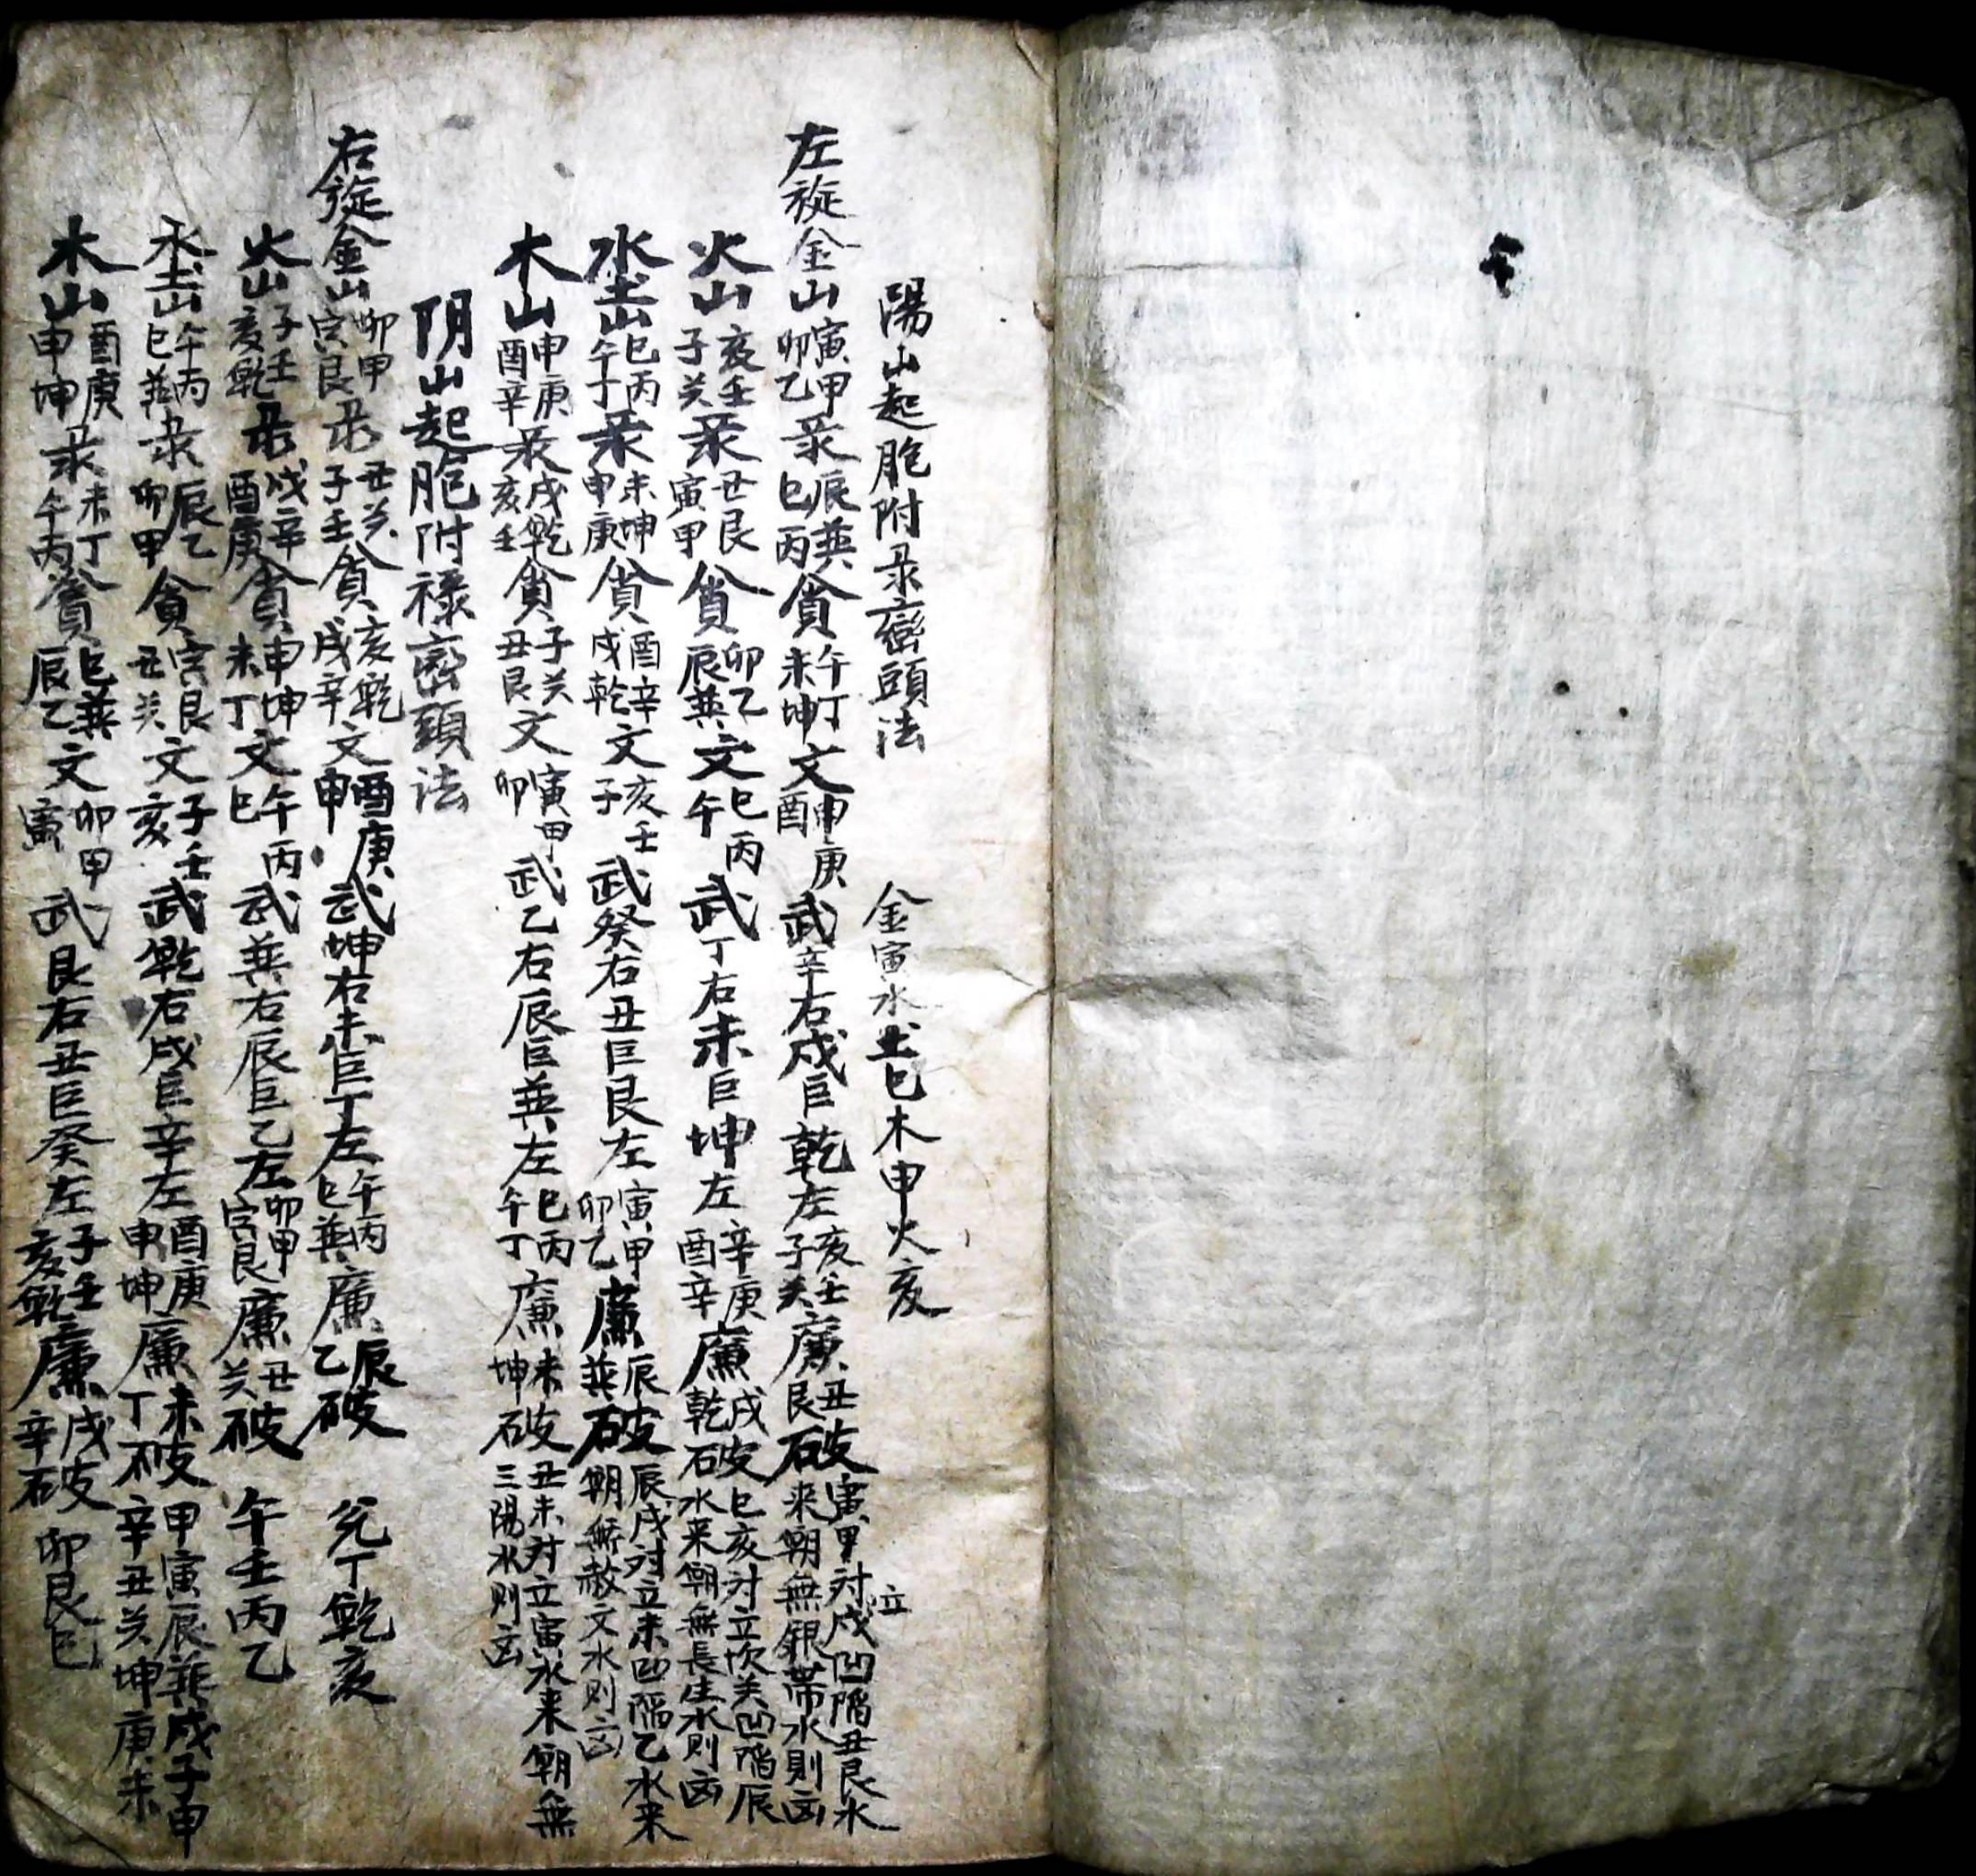 陽山起胞附彔巒頭法 金寅水土巳木申火亥
左旋金山寅甲卯乙彔辰巽巳丙貪午丁未坤文申庚酉武辛右戌巨乾左亥壬子癸廉丑艮破寅甲対戌凹陷丑艮水来朝無銀帯水則凶
立
火山亥壬子癸彔丑艮寅甲貪卯乙辰巽文巳丙午武丁右未巨坤左辛庚酉辛廉戌乾破巳亥対立坎癸凹陷辰水来朝無長生水則凶
水土山巳丙午丁彔未坤申庚貪酉辛戌乾文亥壬子武癸右丑巨艮左寅甲卯乙廉辰巽破辰戌対立未凹陷乙水来朝無赦文水則凶
木山申庚酉辛彔戌乾亥壬貪子癸丑艮文寅甲卯武乙右辰巨巽左巳丙午丁廉未坤破丑未対立寅水来朝無三陽水則凶
阴山起胞附祿巒頭法
右旋金山卯甲寅艮彔丑癸子壬貪亥乾戌辛文酉庚申武坤右未巨丁左午丙巳巽廉辰乙破 兊丁乾亥
火山子壬亥乾彔戌辛酉庚貪申坤未丁文午丙巳武巽右辰巨乙左卯甲寅艮廉丑癸破 午壬丙乙
水土山午丙巳巽彔辰乙卯甲貪寅艮丑癸文子壬亥武乾右戌巨辛左酉庚申坤廉未丁破甲寅辰巽戌子申辛丑癸坤庚未
木山酉庚申坤彔未丁午丙貪巳巽辰乙文卯甲寅武艮右丑巨癸左子壬亥乾廉戌辛破 卯艮巳